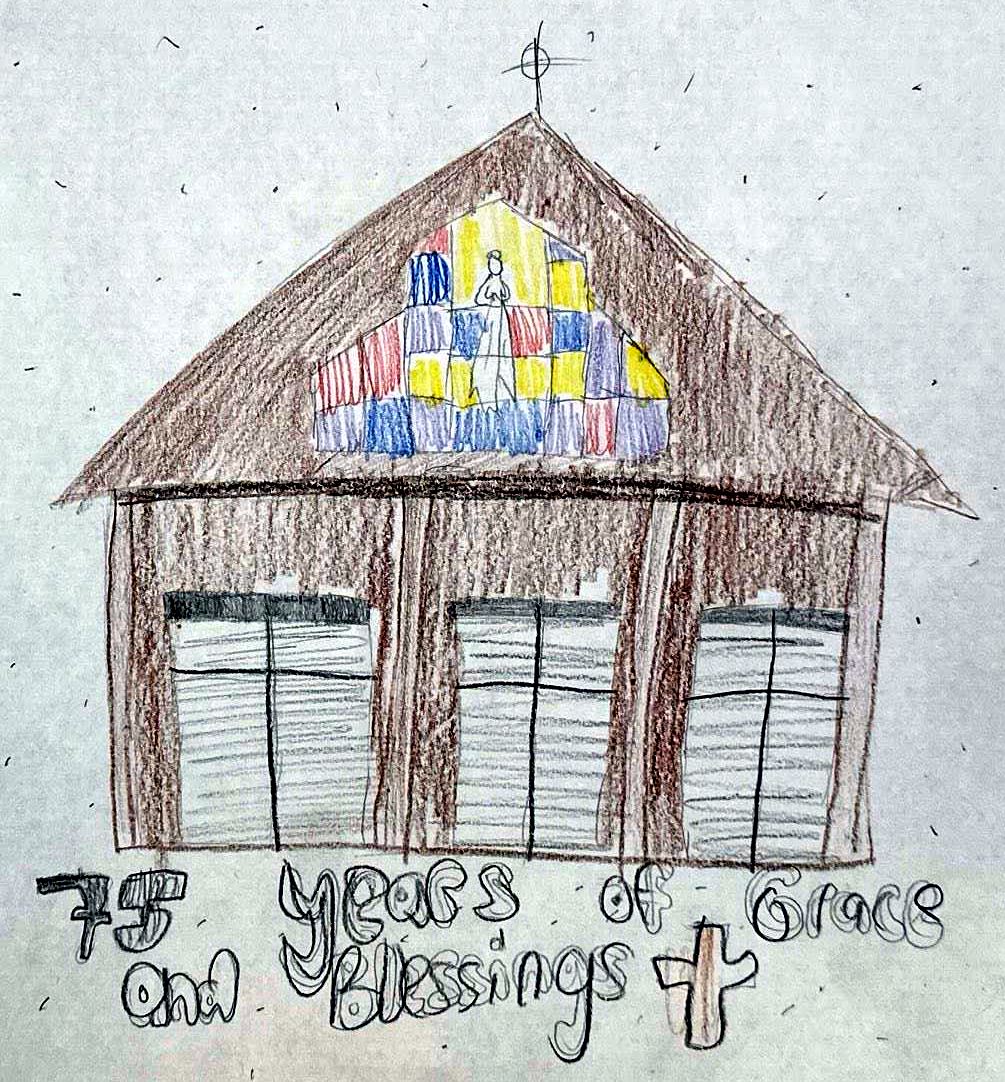 75 years of Grace
and Blessings